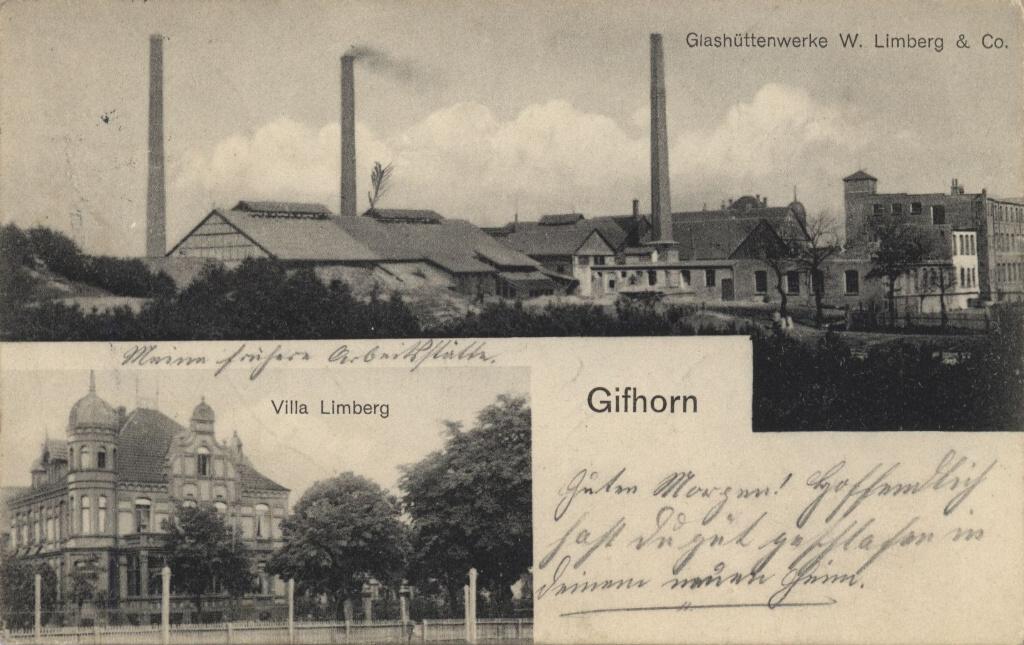 Glashüttenwerke W. Limberg & Co.
Meine frühere Arbeitsstätte.
Villa Limberg
Gifhorn
Guten Morgen! Hoffendlich
hast Du gut geschlafen in
deinem neuen Heim.